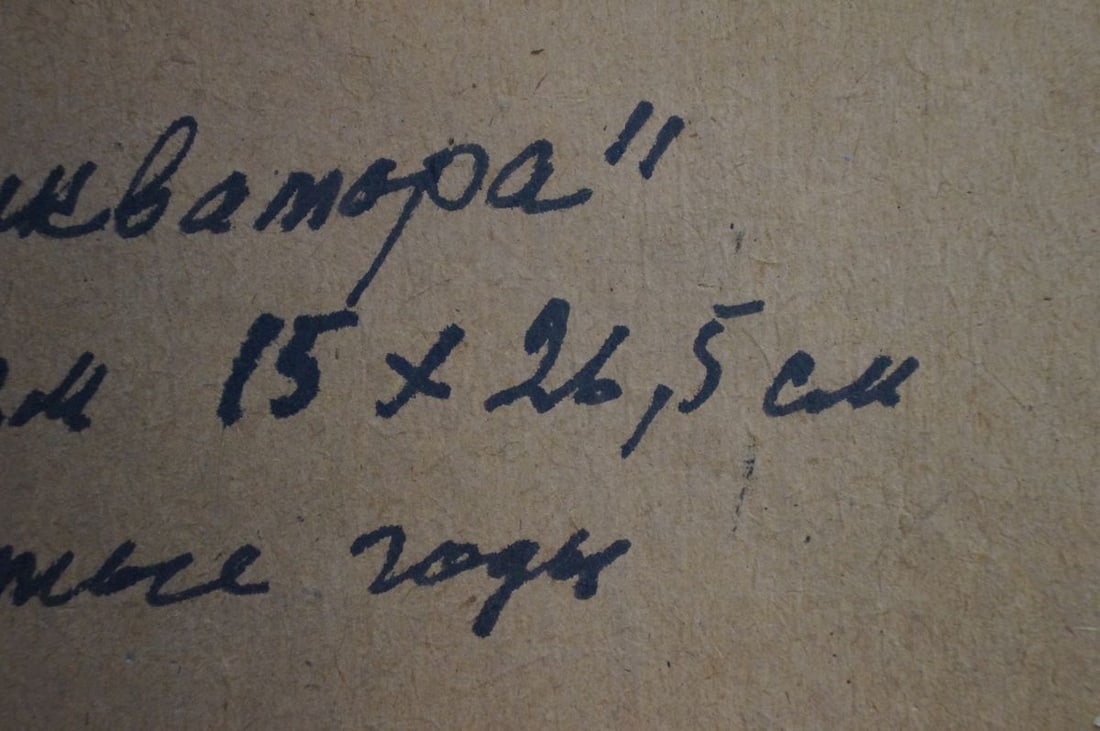 кватора"
м 15 х 26,5 см
тые годы